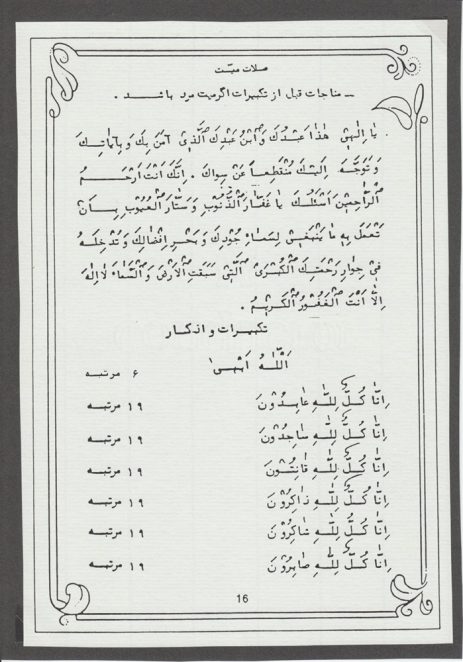 صلات میّت
ــ مناجات قبل از تکبیرات اگر میت مرد باشد .
یا اِلٰهی هٰذا عَبْدُکَ وَٱبْنُ عَبْدِکَ ٱلَّذی آمَنَ بِکَ وَ بِآیاتِکَ
وَ تَوَجَّهَ اِلَیْکَ مُنْقَطِعاً عَنْ سِواکَ . اِنَّکَ اَنْتَ اَرْحَمُ
ٱلرّاحِمینَ اَسْئَلُکَ یا غَفّارَ ٱلذُّنُوبِ وَ سَتّارَ ٱلْعُیُوبِ بِاَنْ
تَعْمَلَ بِهِ ما یَنْبَغی لِسَماءِ جُودِکَ وَ بَحْرِ اِفْضالِکَ وَ تُدْخِلَهُ
فی جِوارِ رَحْمَتِکَ ٱلْکُبْریٰ ٱلَّتی سَبَقَتِ ٱلْاَرْضَ وَ ٱلسَّماءَ لا اِلٰهَ
اِلّا اَنْتَ ٱلْغَفُورُ ٱلْکَریمُ .
تکبیرات و اذکار
اَللّٰهُ اَبْهیٰ ۶ مرتبه
اِنّا کُلٌّ لِلّٰهِ عابِدُوْنَ ۱۹ مرتبه
اِنّا کُلٌّ لِلّٰهِ ساجِدُونَ ۱۹ مرتبه
اِنّا کُلٌّ لِلّٰهِ قانِتُوْنَ ۱۹ مرتبه
اِنّا کُلٌّ لِلّٰهِ ذاکِرُوْنَ ۱۹ مرتبه
اِنّا کُلٌّ لِلّٰهِ شاکِرُوْنَ ۱۹ مرتبه
اِنّا کُلٌّ لِلّٰهِ صابِرُوْنَ ۱۹ مرتبه
16